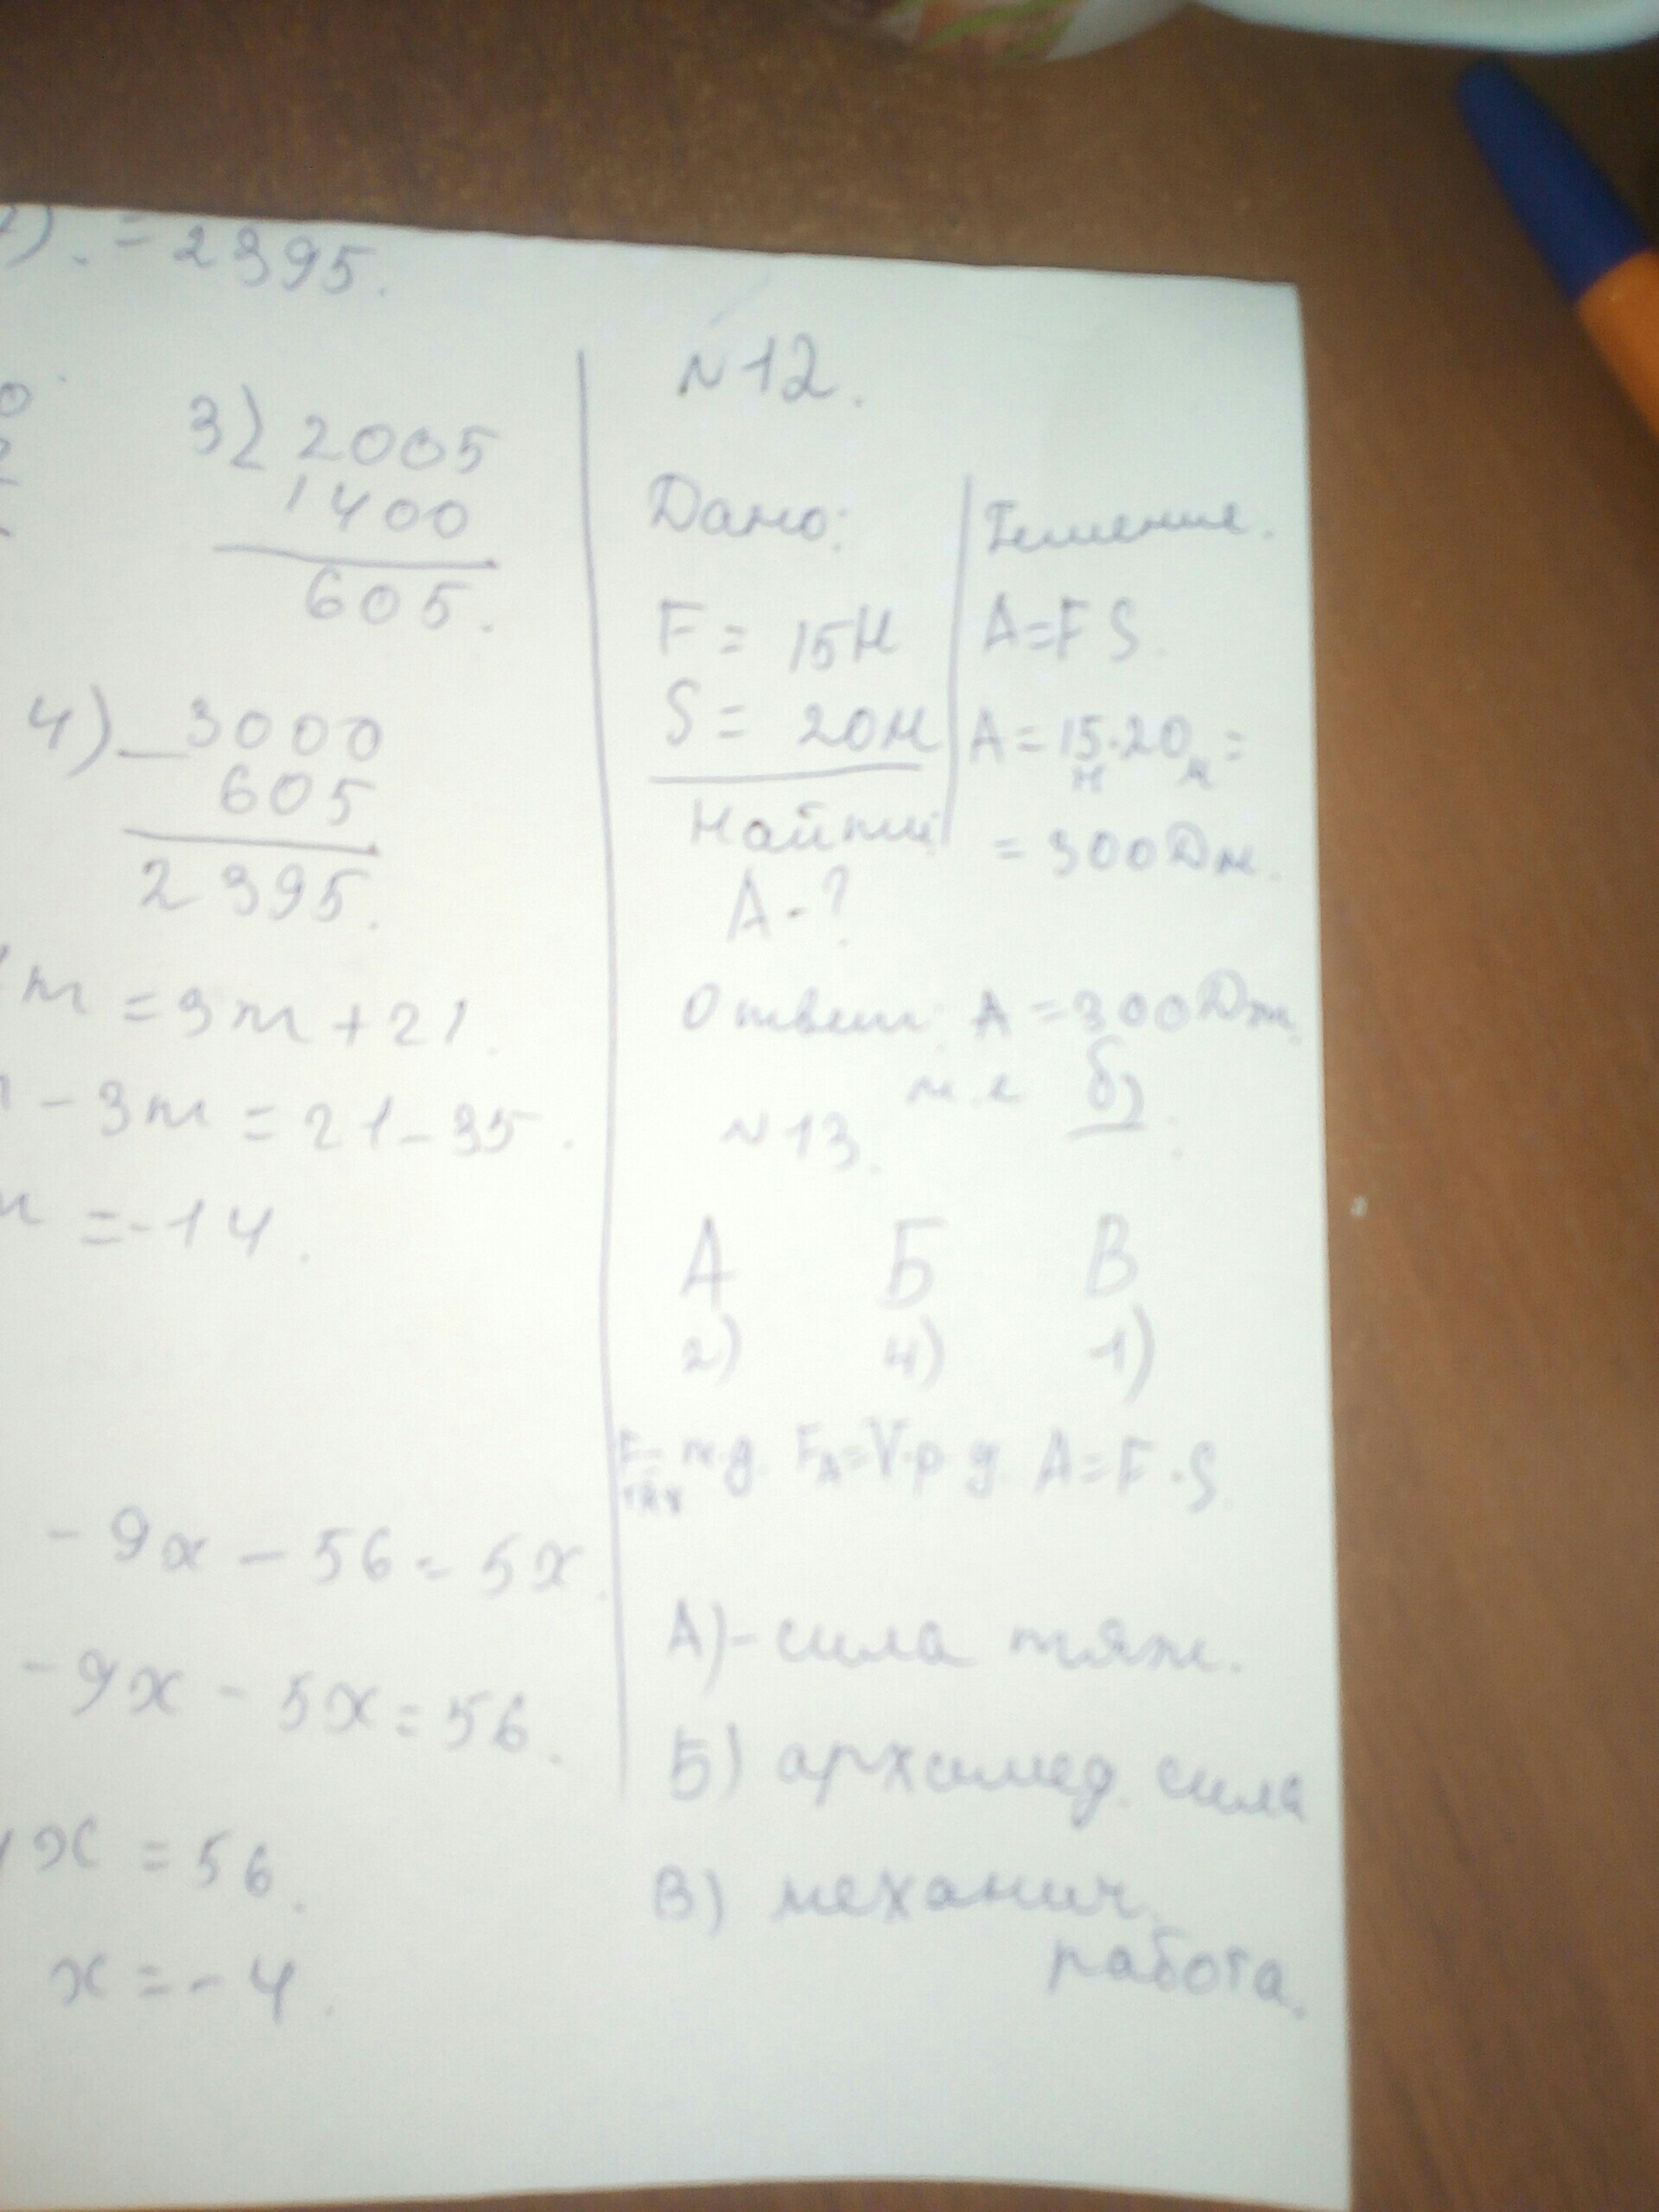 ). = 2395.
3) 2005
1400
605.
4) 3000
605
2395.
m = 3m + 21.
- 3m = 21 - 35.
= -14.
- 9x - 56 = 5x.
- 9x - 5x = 56.
x = 56.
x = -4.
N 12.
Дано:
F = 15Н
S = 20м
Найти
А - ?
Решение.
A = F S.
A = 15 · 20 =
н м
= 300 Дж.
Ответ: А = 300 Дж.
т. е б)
N 13.
А Б В
2) 4) 1)
F = m·g. FA = V·p·g. A = F · S
тяж
А) - сила тяж.
Б) архимед. сила
В) механич.
работа.